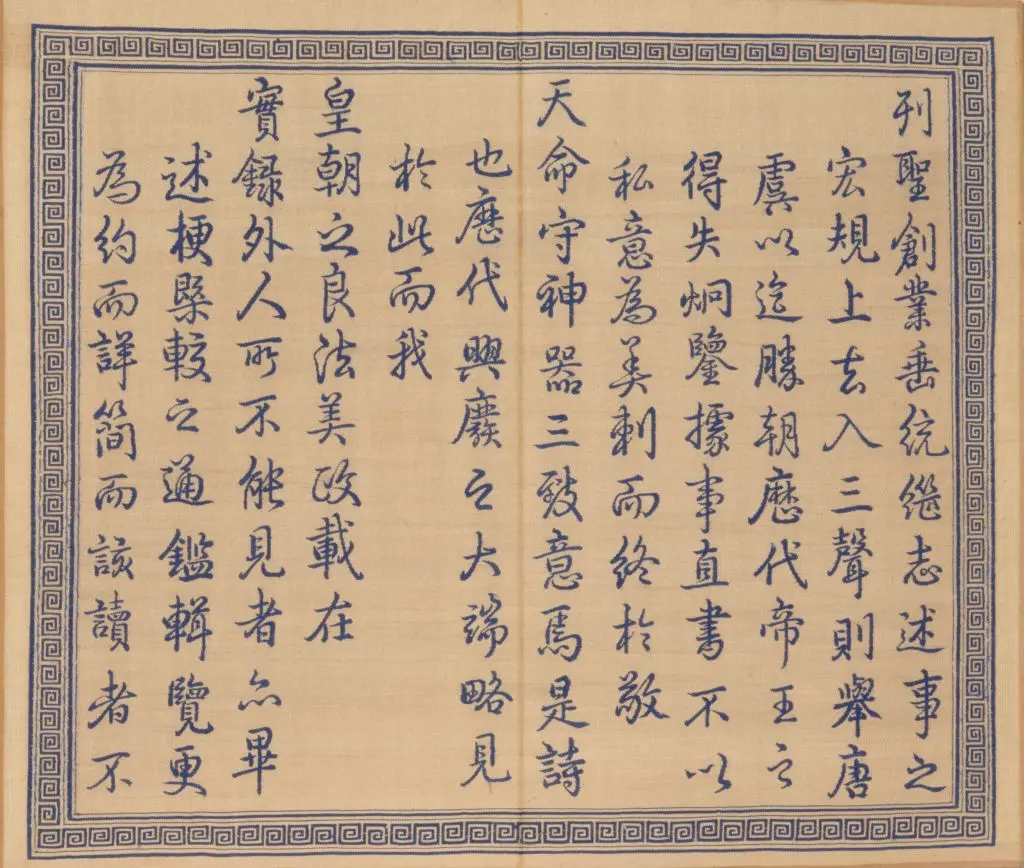 列聖創業垂統繼志述事之
宏規上去入三聲則舉唐
虞以迄勝朝歷代帝王之
得失炯鑒據事直書不以
私意為美刺而終於敬
天命守神器三致意焉是詩
也歷代興廢之大端略見
於此而我
皇朝之良法美政載在
實錄外人所不能見者亦畢
述梗槩較之通鑑輯覽更
為約而詳簡而該讀者不